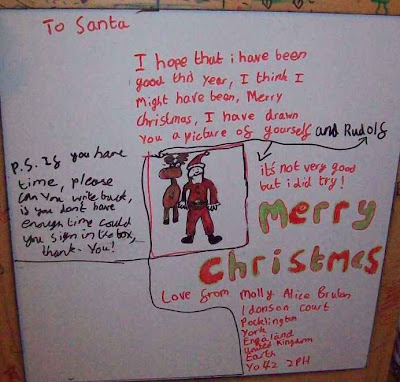 To Santa
I hope that i have been
good this year, I think I
Might have been, Merry
Christmas, I have drawn
you a picture of yourself and Rudolf
it's not very good
but i did try!
P.S. If you have
time, please
can you write back,
is you dont have
enough time could
you sign in the box,
thank. You!
Merry
Christmas
Love from Molly Alice Bruton
1 donson court
Pocklington
York
England
United Kingdom
Earth
YO42 2PH